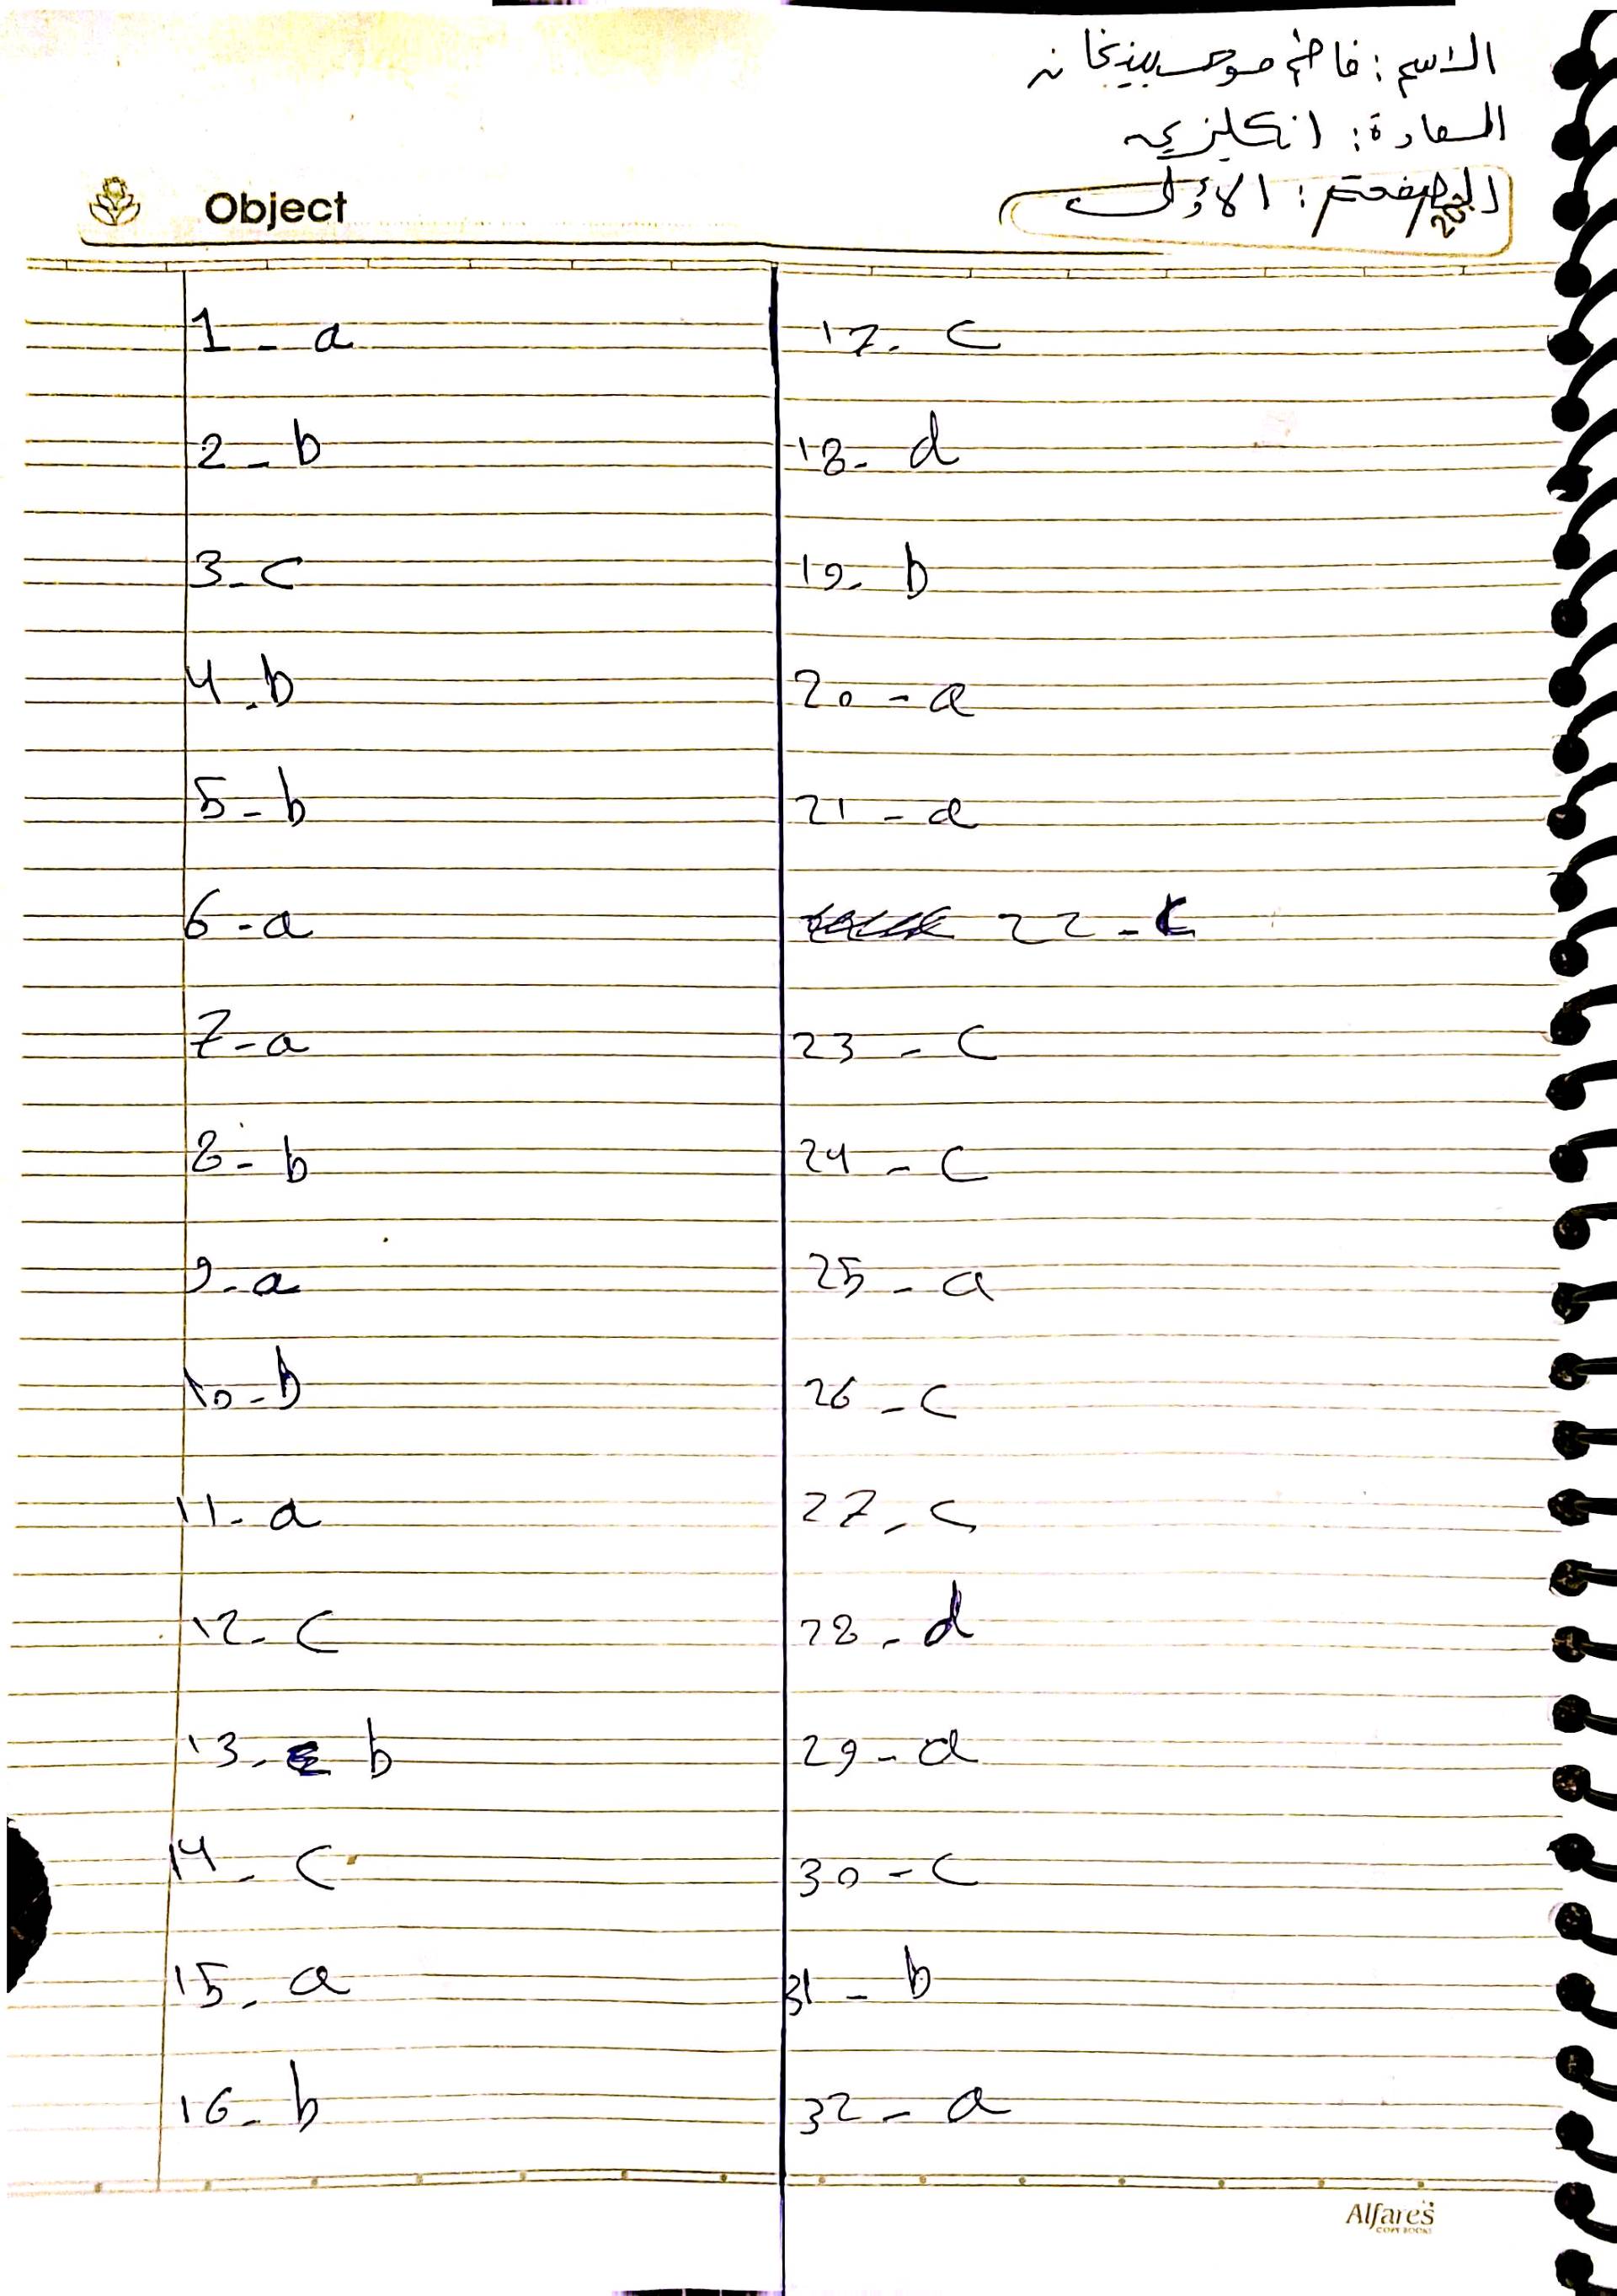 الاسم : فاطمة موسى
المادة : انكليزي
الصفحة : الأولى
Object
1 - a
2 - b
3 - c
4 - b
5 - b
6 - a
7 - a
8 - b
9 - a
10 - b
11 - a
12 - c
13 - b
14 - c
15 - a
16 - b
17 - c
18 - d
19 - b
20 - a
21 - a
22 - c
23 - c
24 - c
25 - a
26 - c
27 - c
28 - d
29 - d
30 - c
31 - b
32 - a
Alfares
COPY BOOKS